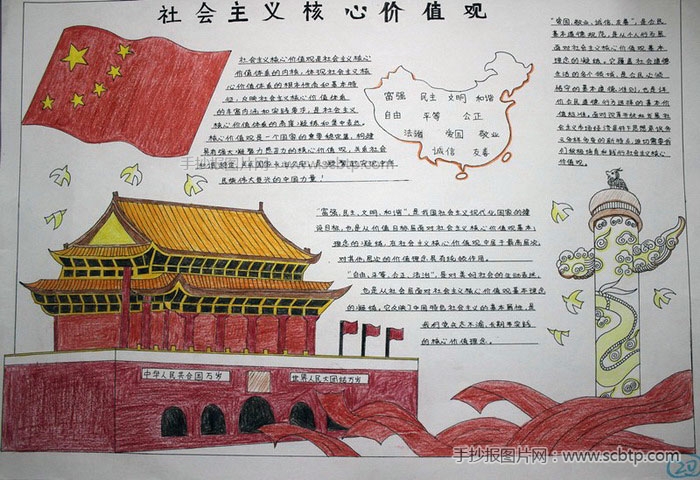 社会主义核心价值观
社会主义核心价值观是社会主义核心
价值体系的内核，体现社会主义核
心价值体系的根本性质和基本特
征，反映社会主义核心价值体系
的丰富内涵和实践要求，是社会主义
核心价值体系的高度凝练和集中表达。
核心价值观是一个国家的重要稳定器，构建
具有强大凝聚力感召力的核心价值观，关系社会
民族伟大复兴的中国力量！
富强 民主 文明 和谐
自由 平等 公正
法治 爱国 敬业
诚信 友善
"爱国、敬业、诚信、友善"，是公民
基本道德规范，是从个人行为层
面对社会主义核心价值观基本
理念的凝练。它覆盖社会道德
生活的各个领域，是公民必须
恪守的基本道德准则，也是评
价公民道德行为选择的基本价
值标准。
核心价值观。
"富强、民主、文明、和谐"，是我国社会主义现代化国家的建
设目标，也是从价值目标层面对社会主义核心价值观基本
理念的凝练，在社会主义核心价值观中居于最高层次，
对其他层次的价值理念具有统领作用。
"自由、平等、公正、法治"，是对美好社会的生动表述，
也是从社会层面对社会主义核心价值观基本理念
的凝练。它反映了中国特色社会主义的基本属性，是
我们党矢志不渝、长期实践
的核心价值理念。
中华人民共和国万岁
世界人民大团结万岁
手抄报图片网：www.scbtp.com
20